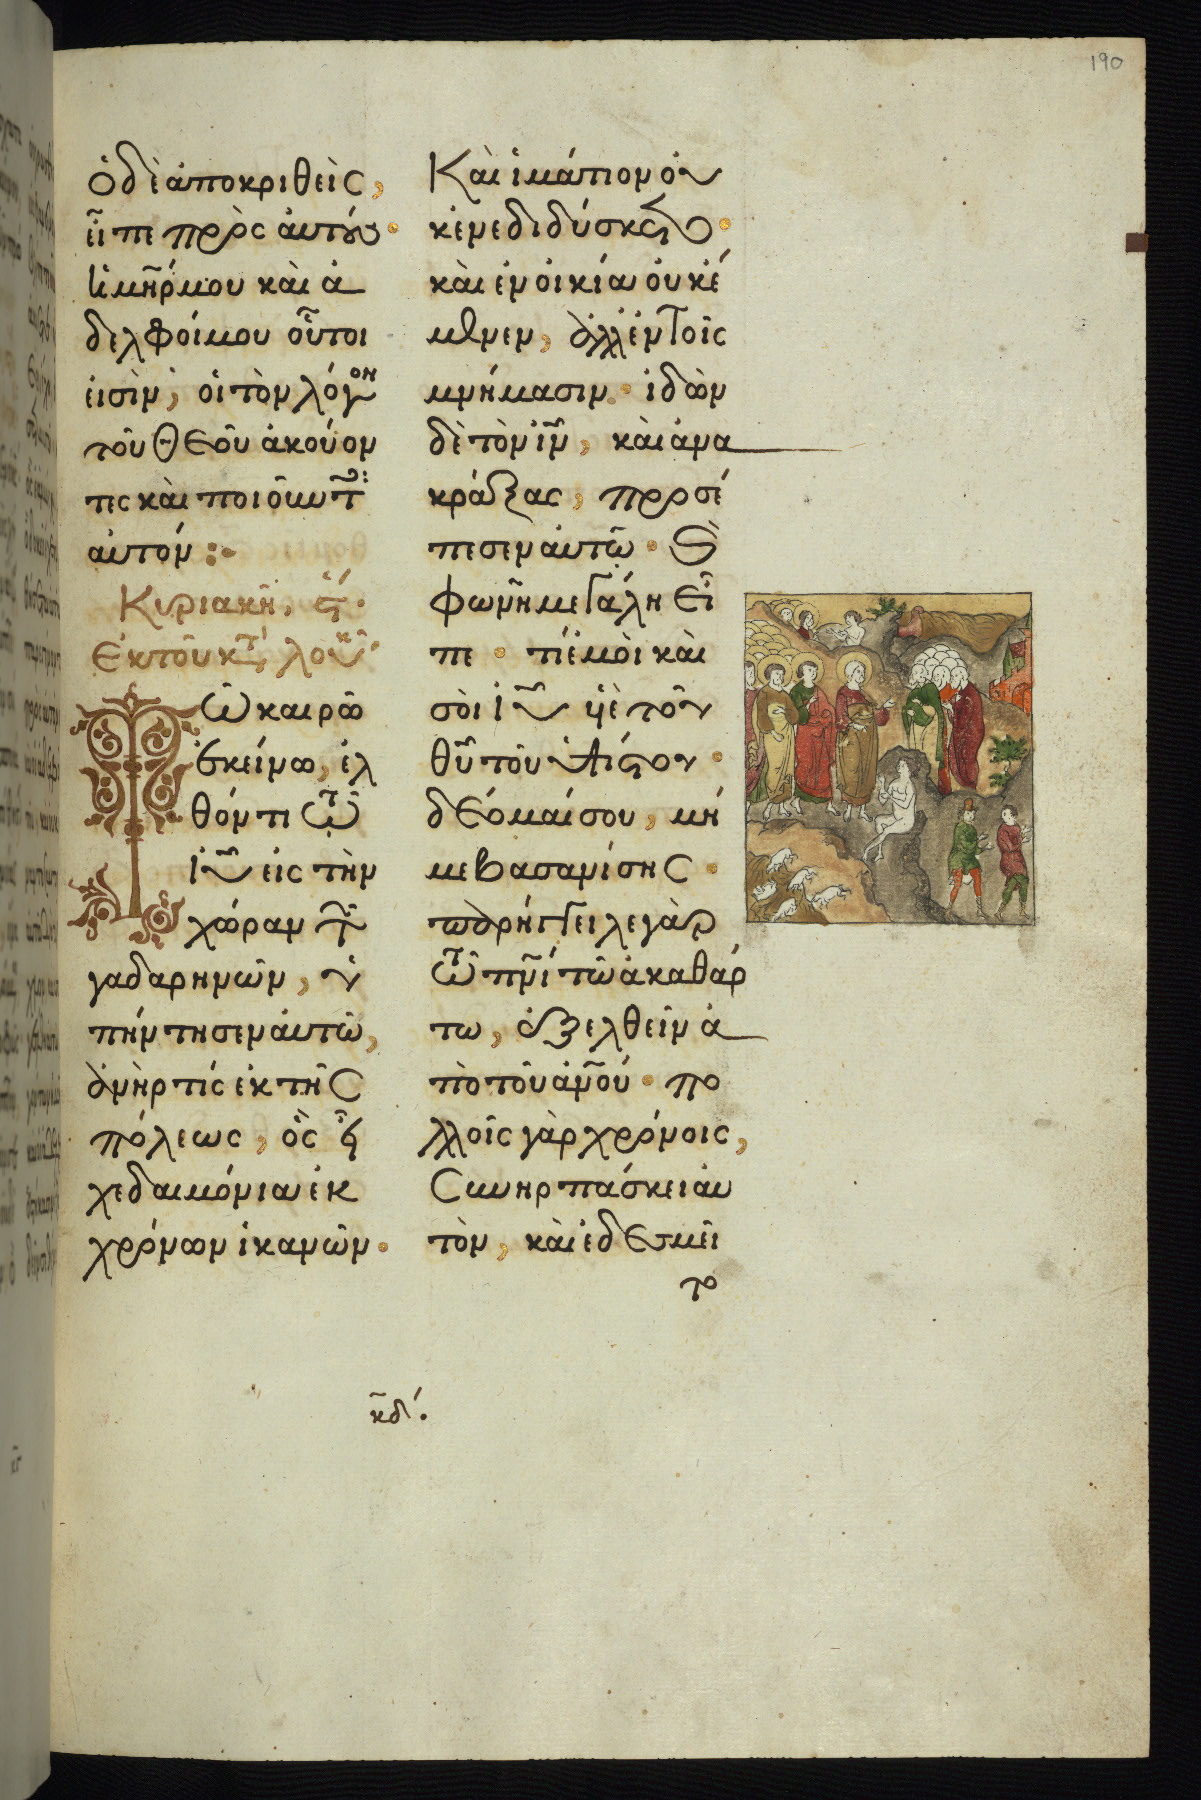 190
Ὁ δὲ ἀποκριθεὶς,
εἶπε πρὸς αὐτούς·
ἡ μῆρ μου καὶ ἀ
δελφοί μου οὗτοι
εἰσὶν, οἱ τὸν λόγον
τοῦ Θεοῦ ἀκούον
τες καὶ ποιοῦντ
αὐτόν:·
Κυριακῆ, ϛ΄.
Ἐκ τοῦ κτ, λουκ
Τῶ καιρῶ
ἐκείνω, ἐλ
θόντι τῶ
ἰῦ εἰς τὴν
χώραν τ
γαδαρηνῶν, ὑ
πήντησεν αὐτῶ,
ἀνὴρ τίς ἐκ τῆς
πόλεως, ὃς εἶ
χε δαιμόνια ἐκ
χρόνων ἱκανῶν·
Καὶ ἱμάτιον οὐ
κ ἐνεδιδύσκετο·
καὶ ἐν οἰκία οὐκ ἔ
μενεν, ἀλλ ἐν τοῖς
μνήμασιν· ἰδὼν
δὲ τὸν ἰν, καὶ ἀνα
κράξας, προσέ
πεσεν αὐτῶ· Καὶ
φωνῆ μεγάλη εἶ
πε· τί ἐμοὶ καὶ
σοὶ ἰῦ υἱὲ τοῦ
θυ τοῦ ὑψίστου·
δέομαί σου, μή
με βασανίσης·
παρήγγειλε γὰρ
τῶ πνί τῶ ἀκαθάρ
τω, ἐξελθεῖν ἀ
πὸ τοῦ ἀνου· πο
λλοῖς γὰρ χρόνοις,
συνηρπάσκει αὐ
τὸν, καὶ ἐδεσμεῖ
το
κδ΄.